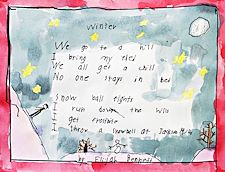 Winter
We go to a hill
I bring my sled
We all get a chill
No one stays in bed
Snow ball fights
I run down the hill
I get frostbite
I throw a snowball at
by Elijah Bennett